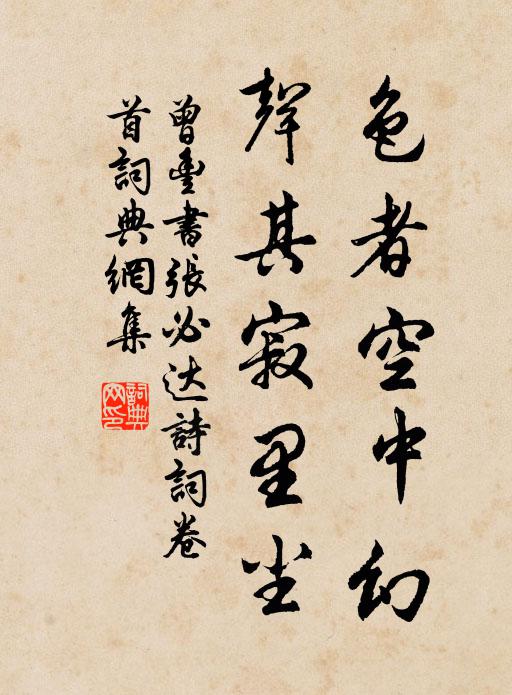 色者空中幻
聲其寂里尘
曾豐書張必达詩詞卷
首詞典網集
詞典網印